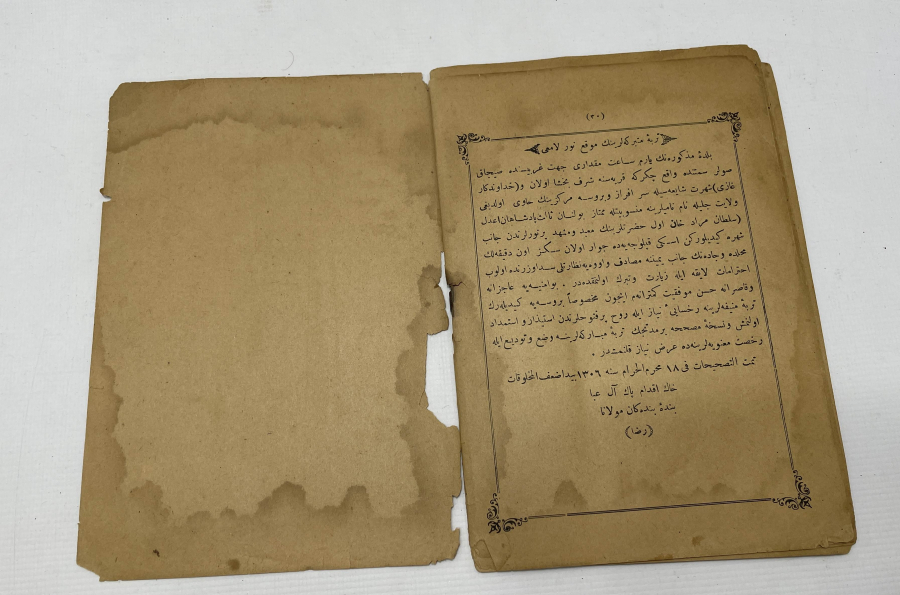 (٣٠)
تربهٔ متبركه‌لرينك موقع نور لامعى
بلدهٔ مذكوره‌نك يارم ساعت مقدارى جهت غربيسنده صيجاق
صولى سمتنده واقع چكركه قريه‌سنه شرف بخشا اولان و(خداوندكار
غازى) شهرت شايعه‌سيله سر افراز وبروسه مركزينك حاوى اولديغى
ولايت جليله نام ناميلرينه منسوبيتله ممتاز بولنان ثالث پادشاهان اعدل
(سلطان مراد خان اول حضرتلرينك معبد ومشهد پرنورلرندن جانب
شهره كيديلوركن اسكى قپلوجه‌يه‌ده جوار اولان سكز اون دقيقه‌لك
محلده وجاده‌نك جانب يمينه مصادف واووه‌يه نظارتلى سد اوزرنده اولوب
احترامات لايقه ايله زيارت وتبرك اولنمقده‌در . بوامنيه عاجزانه
وقاصرانه حسن موفقيت كمترانه‌م ايچون مخصوصاً بروسه‌يه كيديله‌رك
تربهٔ منيفه‌لرينه رخسايئ نياز ايله روح پرفتوحلرندن استيذار واستمداد
اولنمش ونسخهٔ مصححه برمدتجك تربهٔ مباركه‌لرينه وضع وتوديع ايله
رخصت معنويه‌لرينه‌ده عرض نياز قلنمشدر .
تمت التصحيحات فى ١٨ محرم الحرام سنه ١٣٠٦ بيد اضعف المخلوقات
خاك اقدام پاك آل عبا
بندهٔ بندەكان مولانا
(رضا)